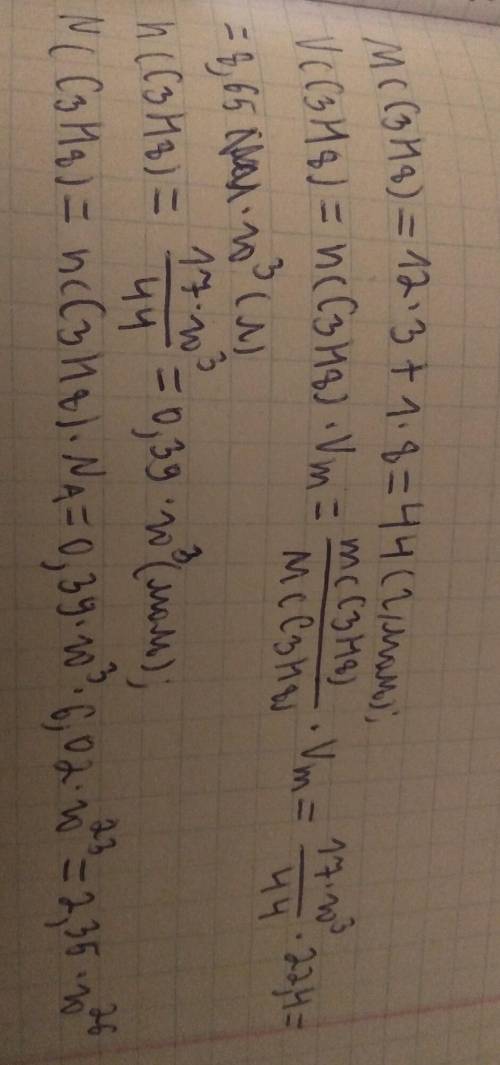 M(C3H8) = 12·3 + 1·8 = 44 (г/моль);
V(C3H8) = n(C3H8)·Vm = m(C3H8)/M(C3H8) · Vm = 17·10³/44 · 22,4 =
= 8,65 ·10³ (л)
n(C3H8) = 17·10³/44 = 0,39·10³ (моль);
N(C3H8) = n(C3H8)·NA = 0,39·10³·6,02·10²³ = 2,35·10²⁶